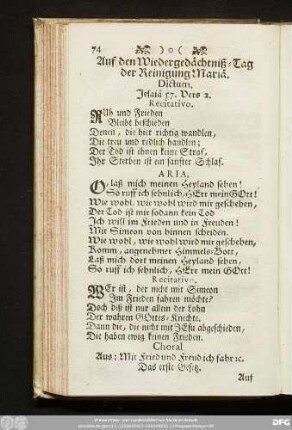 74 )o(
Auf den Wiedergedächtniß-Tag
der Reinigung Mariä.
Dictum.
Jesaiä 57. Vers 2.
Recitativo.
RUh und Frieden
Bleibt beschieden
Denen, die hier richtig wandlen,
Die treu und redlich handlen;
Der Tod ist ihnen keine Straf,
Ihr Sterben ist ein sanfter Schlaf.
ARIA.
O, laß mich meinen Heyland sehen!
So ruff ich sehnlich, HErr mein GOtt!
Wie wohl, wie wohl wird mir geschehen,
Der Tod ist mir sodann kein Tod
Ich will im Frieden und in Freuden!
Mit Simeon von hinnen scheiden.
Wie wohl, wie wohl wird mir geschehen,
Komm, angenehmer Himmels-Bott,
Laß mich dort meinen Heyland sehen,
So ruff ich sehnlich, HErr mein GOtt!
Recitativo.
WEr ist, der nicht mit Simeon
Im Frieden fahren möchte?
Doch diß ist nur allein der lohn
Der wahren GOttes-Knechte.
Dann die, die nicht mit JEsu abgeschieden,
Die haben ewig keinen Frieden.
Choral
Aus: Mit Fried und Freud ich fahr ꝛc.
Das erste Gesetz.
Auf